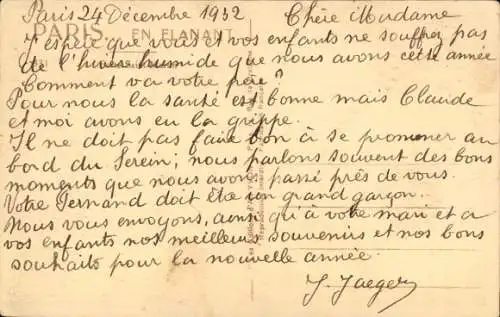 Paris 24 Décembre 1932 Chère Madame
PARIS EN FLANANT
J'espère que vous et vos enfants ne souffrez pas
de l'hiver humide que nous avons cette année
Comment va votre père?
Pour nous la santé est bonne mais Claude
et moi avons eu la grippe.
Il ne doit pas faire bon à se promener au
bord du Serein; nous parlons souvent des bons
moments que nous avons passé près de vous.
Votre Fernand doit être un grand garçon.
Nous vous envoyons, ainsi qu'à votre mari et a
vos enfants nos meilleurs souvenirs et nos bons
souhaits pour la nouvelle année.
J. Jaeger